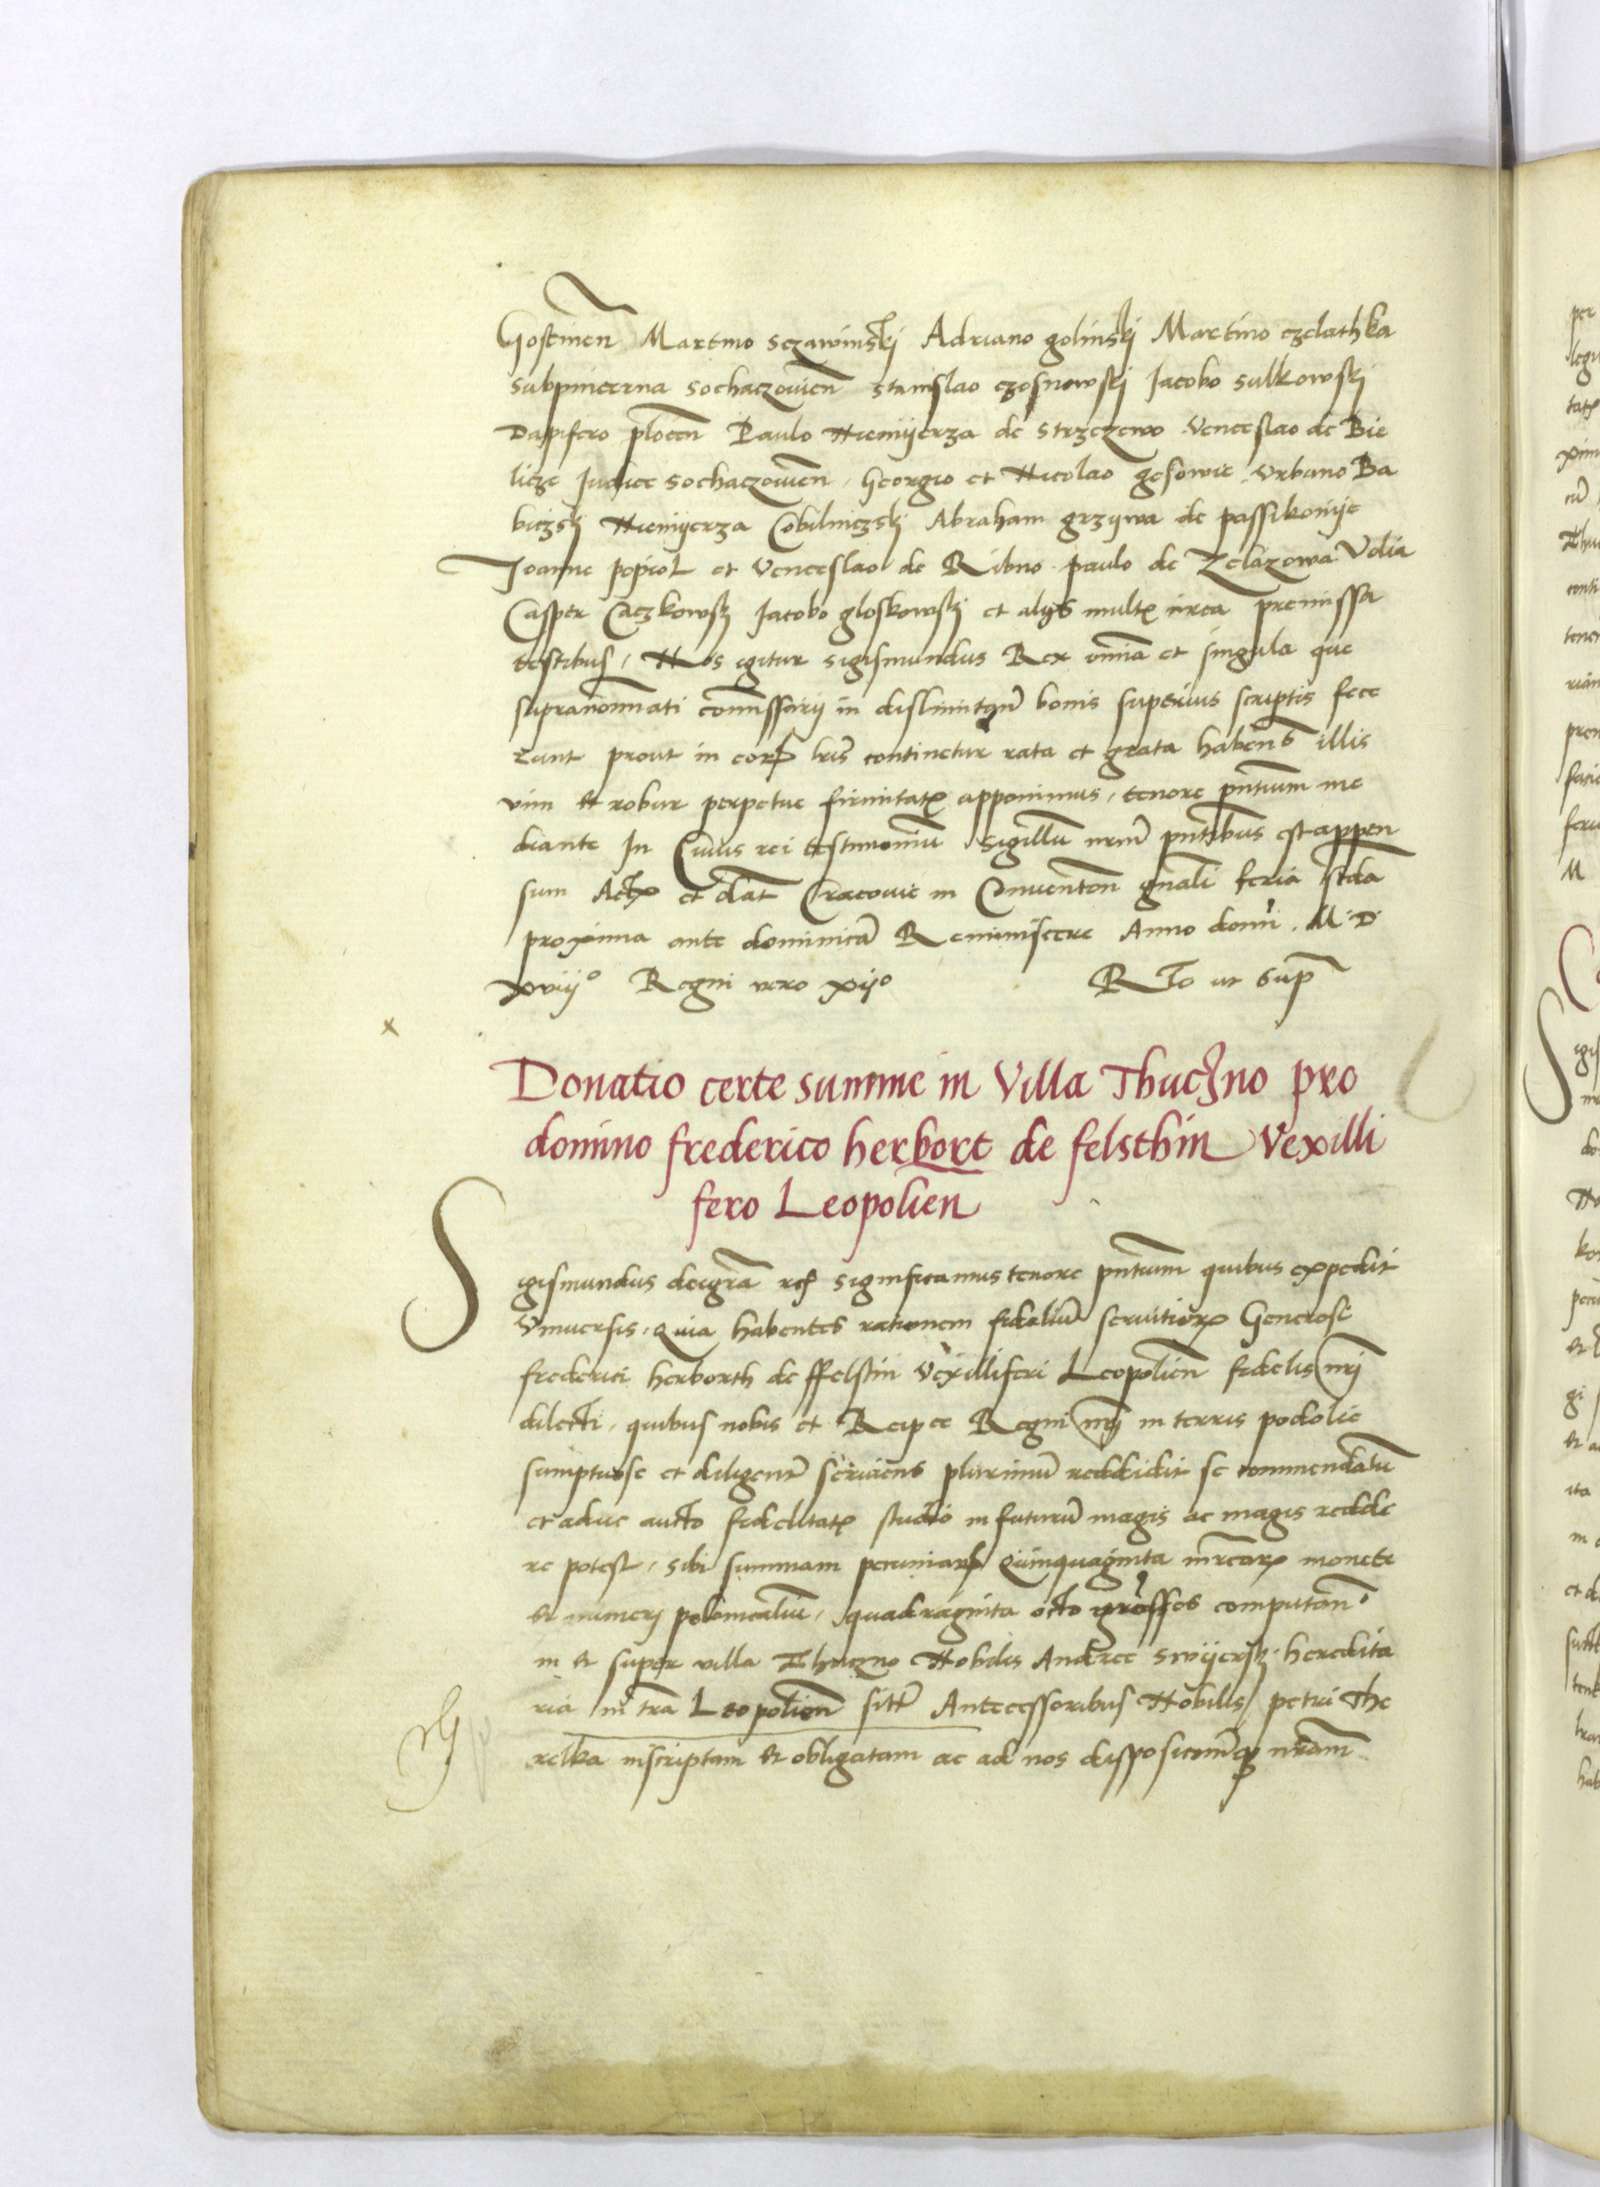 Gostinen̄ Martino sczawinskj Adriano golinskj Martino czelathka
subpincerna sochaczovien̄ stanislao czosnowskj Jacobo sulkowskj
Dapifero plocen̄ Paulo Niemyerza de strzeczewo Venceslao de Bie
licze Judice sochaczovien̄ Georgio et Nicolao gesowie Urbano Ba
biczskj Niemyerza Cobilniczskj Abraham grzywa de passikonÿe
Joanne popiol et Venceslao de Ribno paulo de Zelazowa Volia
Casper Caczkowskj Jacobo gloskowskj et alÿs multꝭ circa premissa
testibus, Nos igitur sigismundus Rex om̄ia et singula que
supranom̄inati com̄issarij in dislimitan̄ bonis superius scriptis fece
runt prout in eorꝝ lr̄is continetur rata et grata habentes illis
vim et robur perpetue firmitatꝭ apponimus, tenore pn̄tium me
diante In Cuius rei testimoniū sigillū nr̄m̄ pn̄tibus est appen
sum Actꝭ et dat̄ Cracovie in Conventon̄ gn̄ali feria scd̄a
proxima ante dominicā Reminiscere Anno domī . M D
xviijº Regni vero xijº R To ut sup̄
Donatio certe summe in Villa Thuczno pro
domino frederico herbort de felsthin Vexilli
fero Leopolien
Sigismundus deigrā rex̄ significamus tenore pn̄tium quibus expedit
Universis, quia habentes rationem fideliū servitiorꝝ Generosi
frederici herborth de ffelstin Vexilliferi Leopolien̄ fidelis nr̄i
dilecti, quibus nobis et Reipce Regni nr̄i in terris podolie
sumptuose et diligent̄ serviens plurimū reddidit se commendatū
et aduc aucto fidelitatꝭ studio in futurū magis ac magis redde
re potest, sibi summam pecuniarꝝ Quinquaginta mr̄carꝝ monete
et numeri polonicalium, quadraginta octo grossos computan̄
in et super villa Thuczno Nobilis Andree swÿerskj heredita
ria in tr̄a Leopolien̄ sitt̄ Antecessoribus Nobilis petri The
relka inscriptam et obligatam ac ad nos dispositionēqꝫ nr̄am